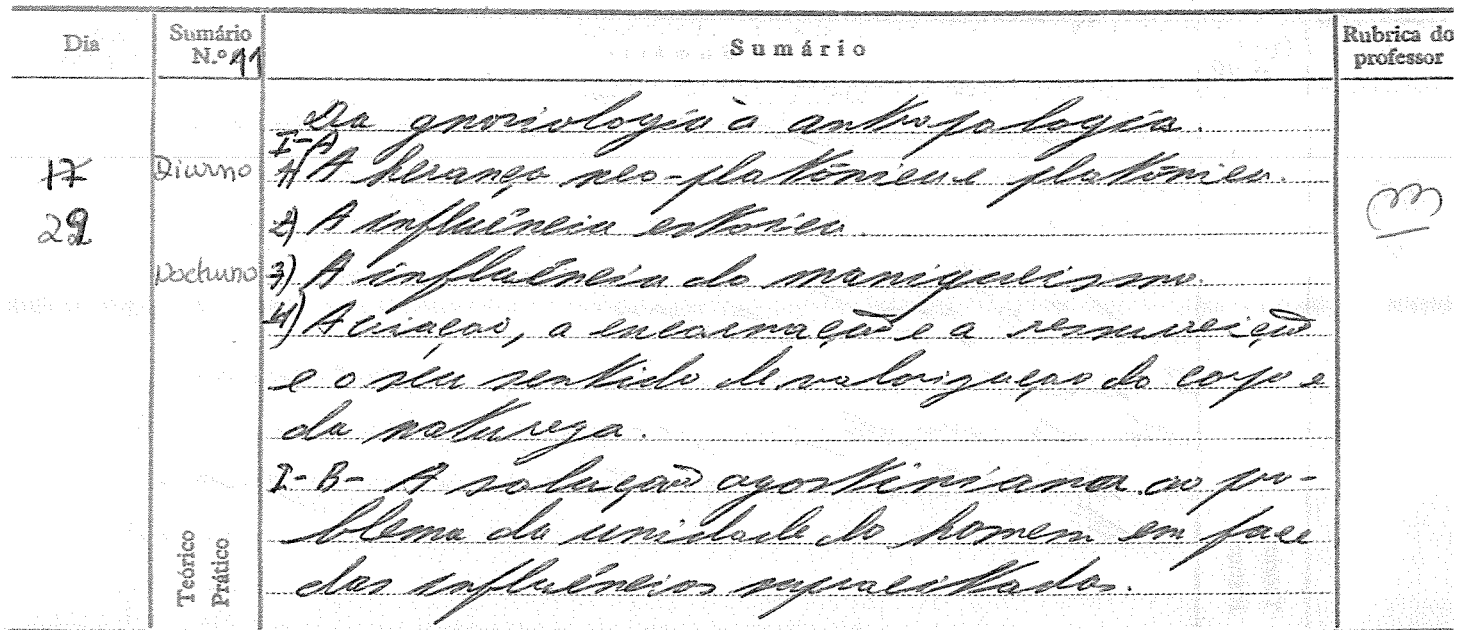 Dia
Sumário N.º 11
Sumário
Rubrica do professor
Da gnosiologia à antropologia.
I-A
17 Diurno 1) A herança neo-platónica e platónica.
22 2) A influência estóica.
Nocturno 3) A influência do maniqueismo.
4) A criação, a encarnação e a ressurreição
e o seu sentido de valorização do corpo e
da natureza.
I-B- A solução agostiniana ao pro-
blema da unidade do homem em face
das influências supracitadas.
Teórico
Prático